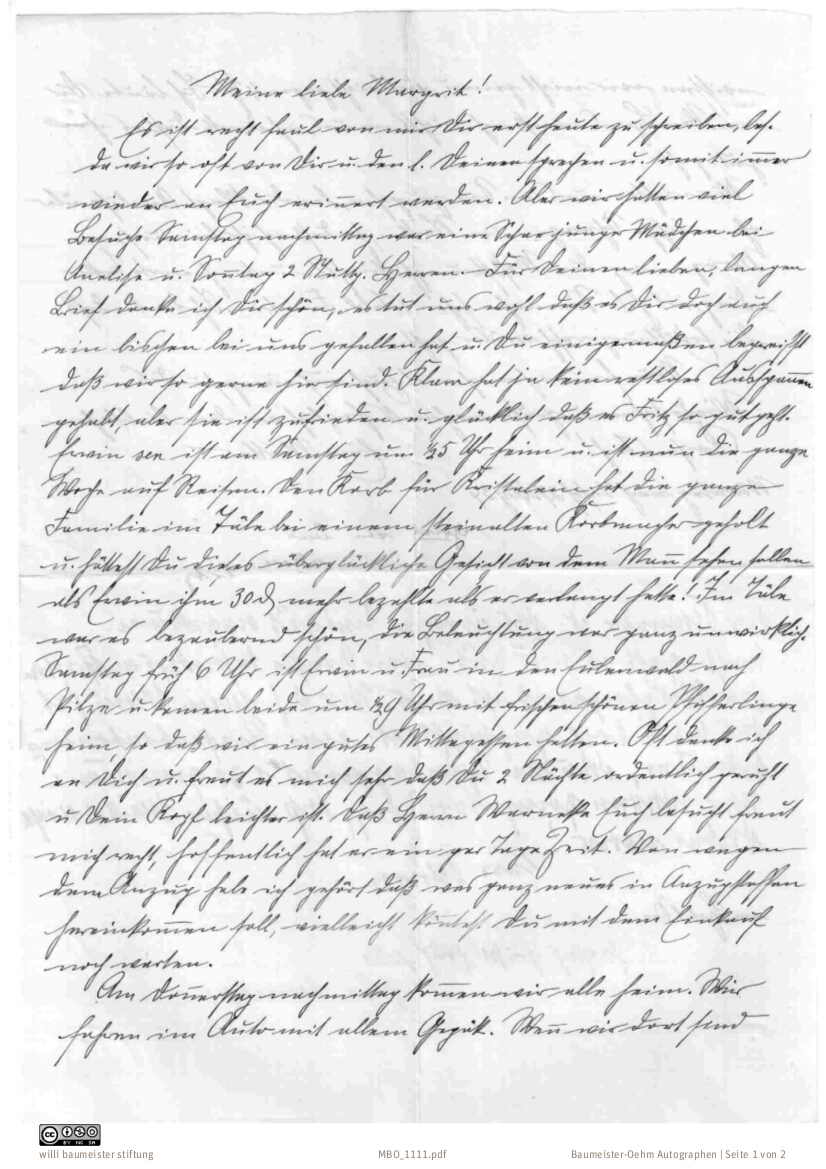 Meine liebe Margrit!
Es ist recht faul von mir Dir erst heute zu schreiben, bes.
da wir so oft von Dir u. den l. Deinen sprechen u. somit immer
wieder an Euch erinnert werden. Aber wir hatten viel
Besuche. Samstag nachmittag war eine Schar junger Mädchen bei
Anelise u. Sonntag 2 Stuttg. Herren. Für Deinen lieben, langen
Brief danke ich Dir schön, es tut uns wohl daß es Dir doch auch
ein bischen bei uns gefallen hat u. Du einigermaßen begreifst
daß wir so gerne hier sind. Klara hat ja kein restloses Ausspannen
gehabt, aber sie ist zufrieden u. glücklich daß es Fritz so gut geht.
Erwin sen ist am Samstag um ½5 Uhr heim u. ist nun die ganze
Woche auf Reisen. Den Korb für Kristalein hat die ganze
Familie im Täle bei einem steinalten Korbmacher geholt
u. hättest Du dieses überglückliche Gesicht von dem Mann sehen sollen
als Erwin ihm 30 ₰ mehr bezahlte als er verlangt hatte! Im Täle
war es bezaubernd schön, die Beleuchtung war ganz unwirklich.
Samstag früh 6 Uhr ist Erwin u. Frau in den Eulenwald nach
Pilze u kamen beide um ½9 Uhr mit frischen schönen Pfifferlinge
heim, so daß wir ein gutes Mittagessen hatten. Oft denke ich
an Dich u. freut es mich sehr daß Du 2 Nächte ordentlich geruht
u Dein Kopf leichter ist. Daß Herrn Warneke Euch besucht freut
mich recht, hoffentlich hat er ein par Tage Zeit. Von wegen
dem Anzug habe ich gehört daß was ganz neues in Anzugstoffen
hereinkommen soll, vielleicht köntest Du mit dem Einkauf
noch warten.
Am Donnerstag nachmittag kommen wir alle heim. Wir
fahren im Auto mit allem Gepäk. Wenn wir dort sind
willi baumeister stiftung
MBO_1111.pdf
Baumeister-Oehm Autographen | Seite 1 von 2